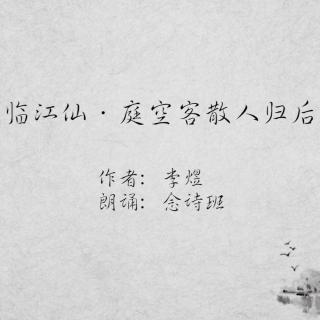 临江仙·庭空客散人归后
作者：李煜
朗诵：念诗班